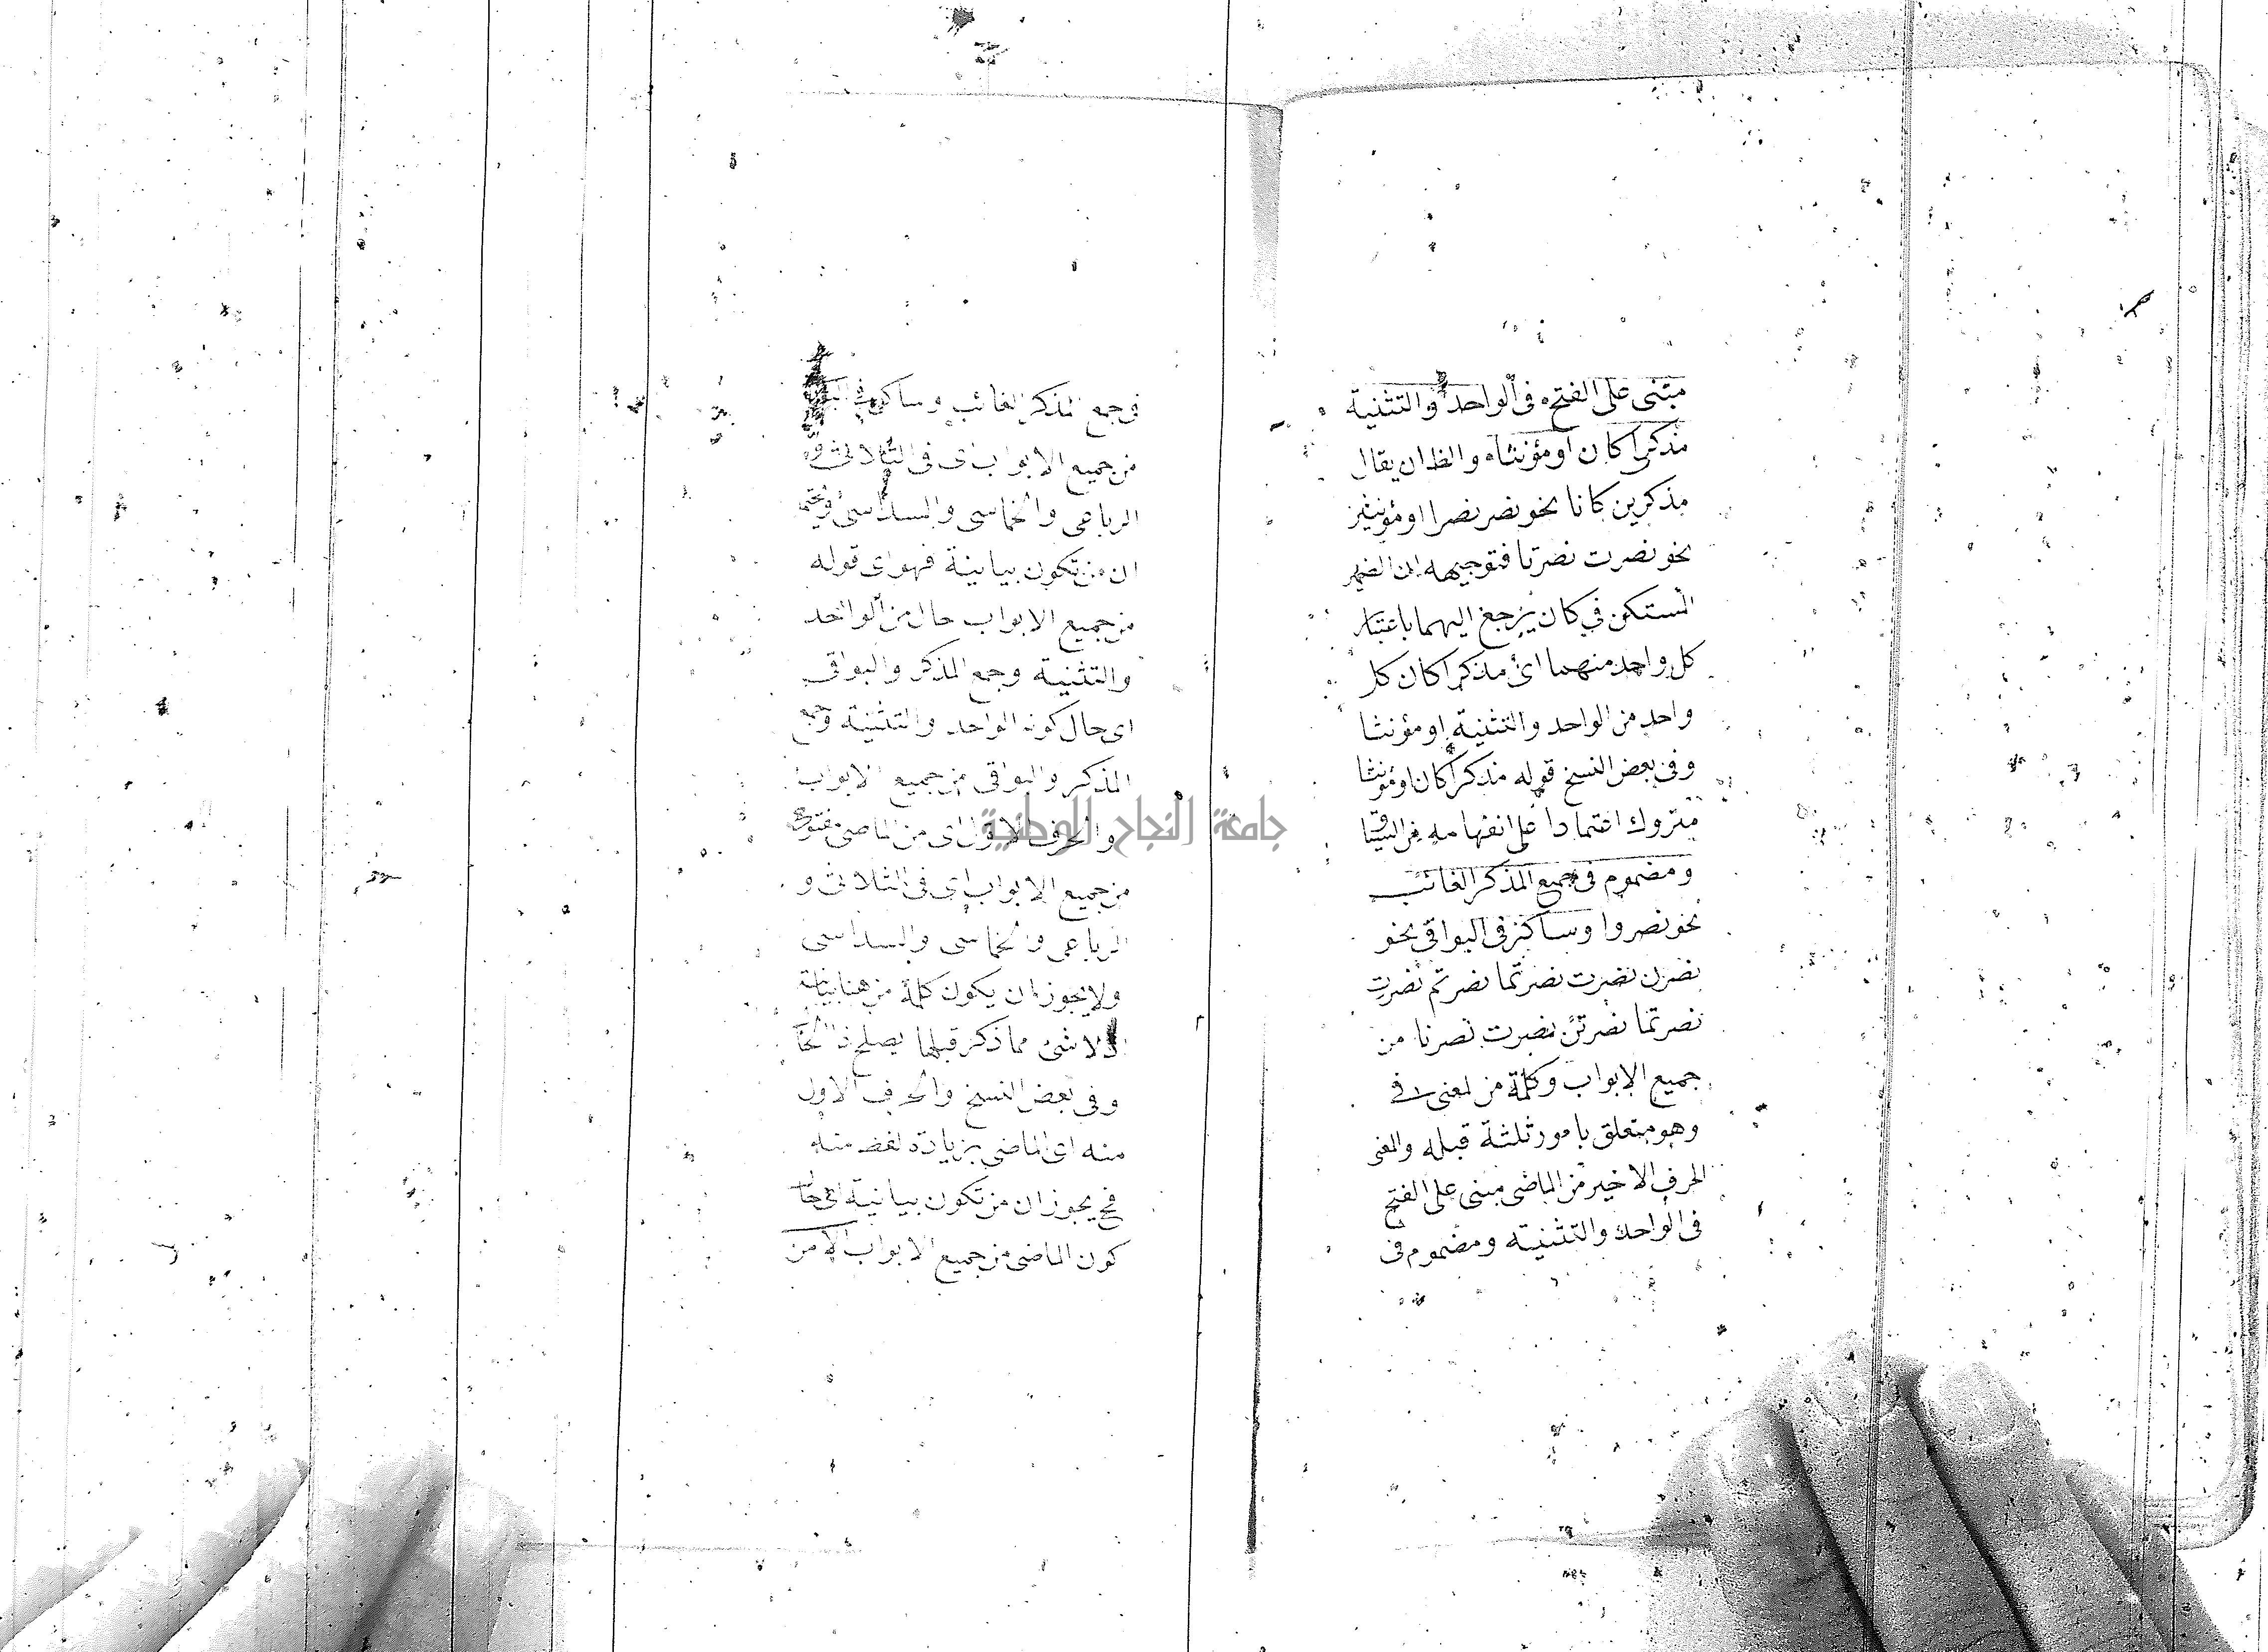 مبنى على الفتح فى الواحد والتثنية
مذكرا كان او مؤنثا والظ ان يقال
مذكرين كانا نحو نصر نصرا او مؤنثين
نحو نصرت نصرتا فتوجيهه ان الضمير
المستكن فى كان يرجع اليهما باعتبار
كل واحد منهما اى مذكرا كان كل
واحد من الواحد والتثنية او مؤنثا
وفى بعض النسخ قوله مذكرا كان او مؤنثا
متروك اعتمادا على انفهامه من
ومضموم فى جميع المذكر الغائب
نحو نصروا وساكن فى البواقى نحو
نصرن نصرت نصرتما نصرتم نصرت
نصرتما نصرتن نصرت نصرنا من
جميع الابواب وكلمة من لمعنى فى
وهو متعلق بامور ثلثة قبله والمعنى
الحرف الاخير من الماضى مبنى على الفتح
فى الواحد والتثنية ومضموم فى
فى جمع المذكر الغائب وساكن فى
من جميع الابواب اى فى الثلاثى و
الرباعى والخماسى والسداسى
ان من تكون بيانية فهو اى قوله
من جميع الابواب حال من الواحد
والتثنية وجمع المذكر والبواقى
اى حال كون الواحد والتثنية وجمع
المذكر والبواقى من جميع الابواب
والحرف الاول اى من الماضى مفتوح
من جميع الابواب اى فى الثلاثى و
الرباعى والخماسى والسداسى
ولا يجوز ان يكون كلمة من هنا بيانية
لا شئ مما ذكر قبلها يصلح
وفى بعض النسخ والحرف الاول
منه اى الماضى بزيادة لفظ منه
فح يجوز ان من تكون بيانية اى حال
كون الماضى من جميع الابواب الا من
جامعة النجاح الوطنية